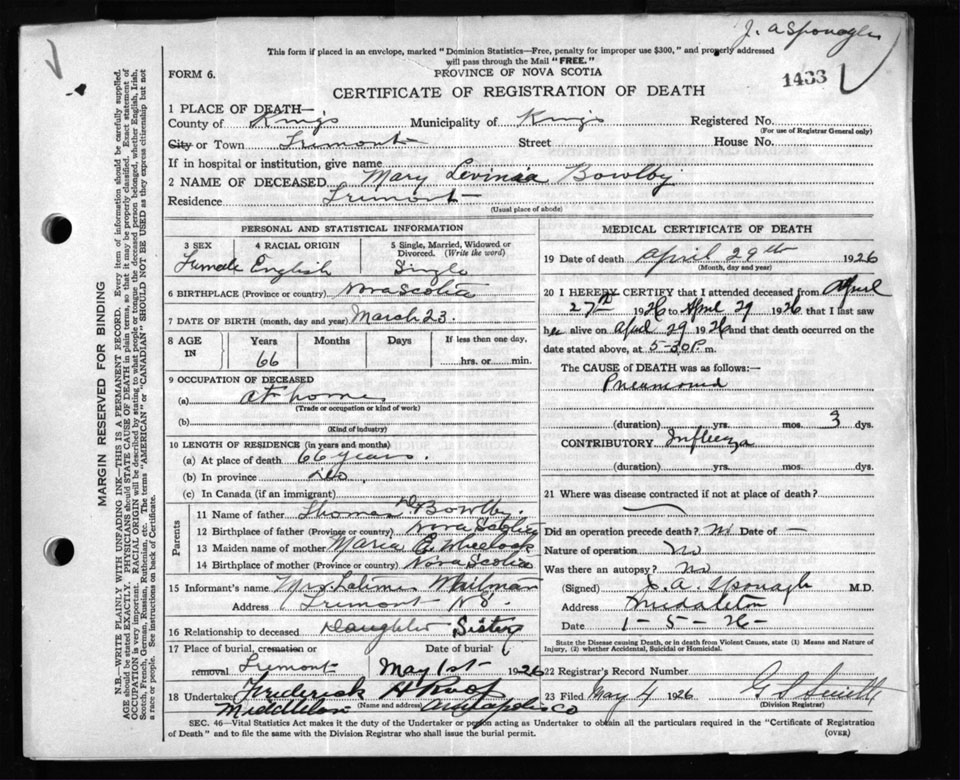 J. A Sponagle
1433
This form if placed in an envelope, marked "Dominion Statistics—Free, penalty for improper use $300," and properly addressed
will pass through the Mail "FREE."
FORM 6.
PROVINCE OF NOVA SCOTIA
CERTIFICATE OF REGISTRATION OF DEATH
1 PLACE OF DEATH—
County of Kings Municipality of Kings Registered No.
(For use of Registrar General only)
City or Town Tremont Street House No.
If in hospital or institution, give name
2 NAME OF DECEASED Mary Levinia Bowlby
Residence Tremont
(Usual place of abode)
PERSONAL AND STATISTICAL INFORMATION
3 SEX 4 RACIAL ORIGIN 5 Single, Married, Widowed or
Divorced. (Write the word)
Female English Single
6 BIRTHPLACE (Province or country) Nova Scotia
7 DATE OF BIRTH (month, day and year) March 23.
8 AGE IN Years Months Days If less than one day,
66 hrs. or min.
9 OCCUPATION OF DECEASED
(a) At home
(Trade or occupation or kind of work)
(b)
(Kind of industry)
10 LENGTH OF RESIDENCE (in years and months)
(a) At place of death 66 years.
(b) In province do
(c) In Canada (if an immigrant)
Parents
11 Name of father Thomas D Bowlby.
12 Birthplace of father (Province or country) Nova Scotia
13 Maiden name of mother Maria E. Wheelock
14 Birthplace of mother (Province or country) Nova Scotia
15 Informant's name Mrs Latimer Mailman
Address Tremont N.S.
16 Relationship to deceased Daughter Sister
17 Place of burial, cremation or Date of burial,
removal Tremont May 1st 1926
18 Undertaker Frederick A Roop
(Name and address)
Middleton Annapolis Co
MEDICAL CERTIFICATE OF DEATH
19 Date of death April 29th 1926
(Month, day and year)
20 I HEREBY CERTIFY that I attended deceased from April
27th 1926 to April 29 1926 that I last saw
her alive on April 29 1926 and that death occurred on
date stated above, at 5-30 P. m.
The CAUSE of DEATH was as follows:—
Pneumonia
(duration) yrs. mos. 3 dys.
CONTRIBUTORY Influenza
(duration) yrs. mos. dys.
21 Where was disease contracted if not at place of death?
Did an operation precede death? No Date of —
Nature of operation No
Was there an autopsy? No
(Signed) J. A. Sponagle M.D.
Address Middleton
Date 1-5-26-
State the Disease causing Death, or in death from Violent Causes, state (1) Means and Nature of
Injury, (2) whether Accidental, Suicidal or Homicidal.
22 Registrar's Record Number
23 Filed May 4 1926 G S Smith
(Division Registrar)
SEC. 46—Vital Statistics Act makes it the duty of the Undertaker or person acting as Undertaker to obtain all the particulars required in the "Certificate of Registration
of Death" and to file the same with the Division Registrar who shall issue the burial permit. (OVER)
MARGIN RESERVED FOR BINDING
N.B.—WRITE PLAINLY WITH UNFADING INK—THIS IS A PERMANENT RECORD. Every item of information should be carefully supplied.
AGE should be stated EXACTLY. PHYSICIANS should STATE CAUSE OF DEATH in plain terms, so that it may be properly classified. Exact statement of
OCCUPATION is very important. RACIAL ORIGIN will be described by stating to what people or tongue the deceased person belonged, whether English, Irish,
Scotch, French, German, Russian, Ruthenian, etc. The terms "AMERICAN" or "CANADIAN" SHOULD NOT BE USED as they express citizenship but not
a race or people. See instructions on back of Certificate.